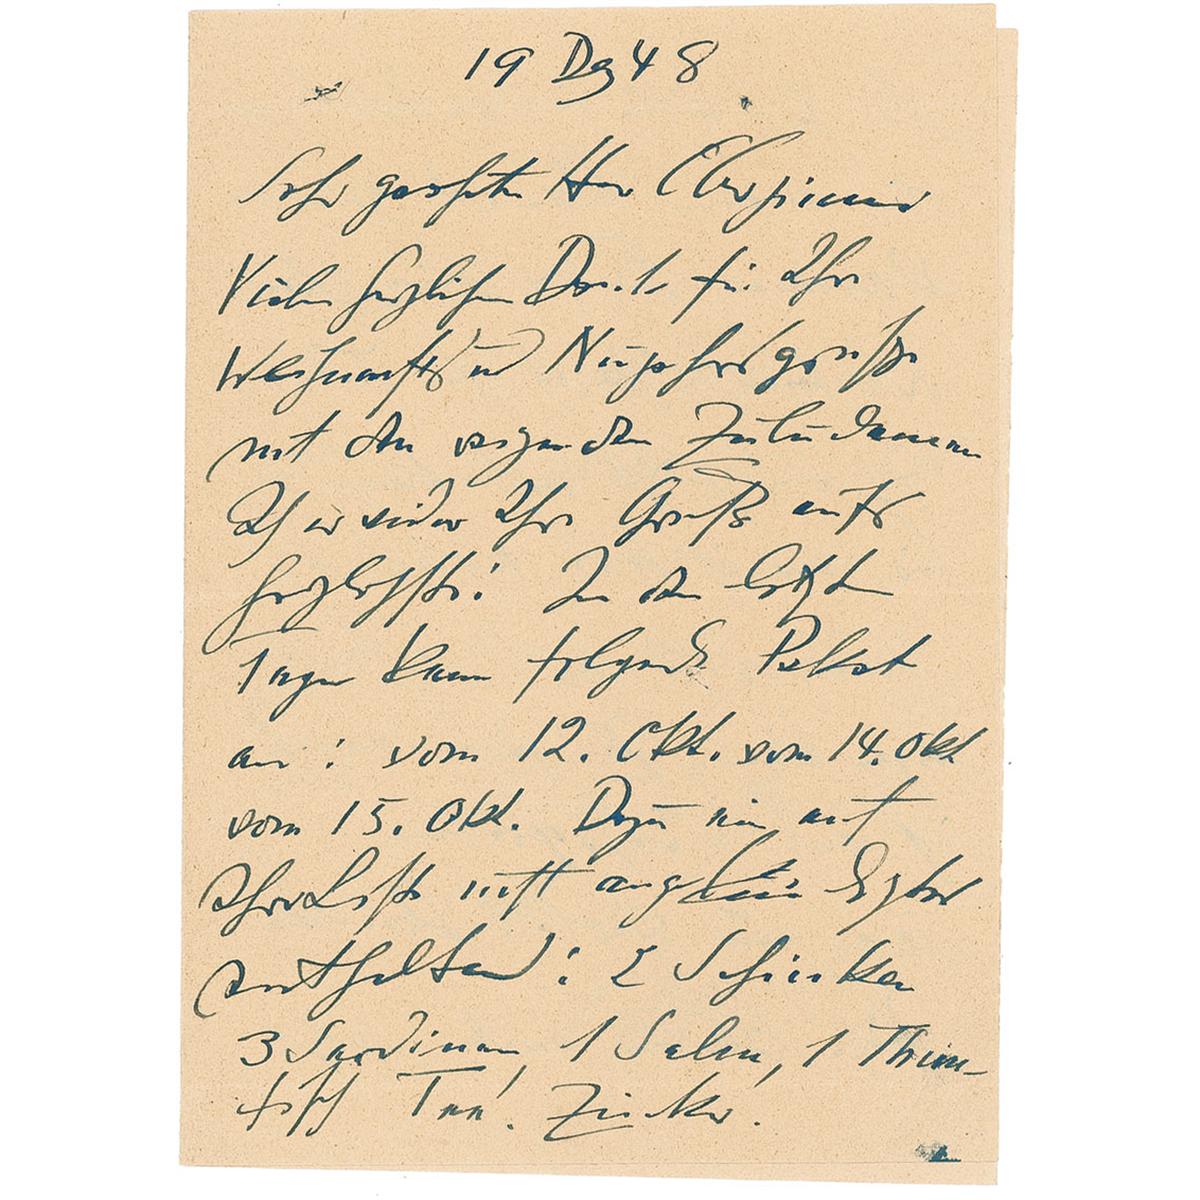 19 Dez 48
Sehr geehrter Herr
Vielen herzlichen Dank für Ihre
Weihnachts und Neujahrsgrüsse
mit den
Ich erwidere Ihre Grüße aufs
herzlichste! In den letzten
Tagen kamen folgende Pakete
an: vom 12. Okt. vom 14. Okt
vom 15. Okt. Dazu ein auf
Ihrer Liste nicht
enthaltend: 2 Schinken
3 Sardinen, 1 Salm, 1 Thun-
fisch Tee, Zucker.